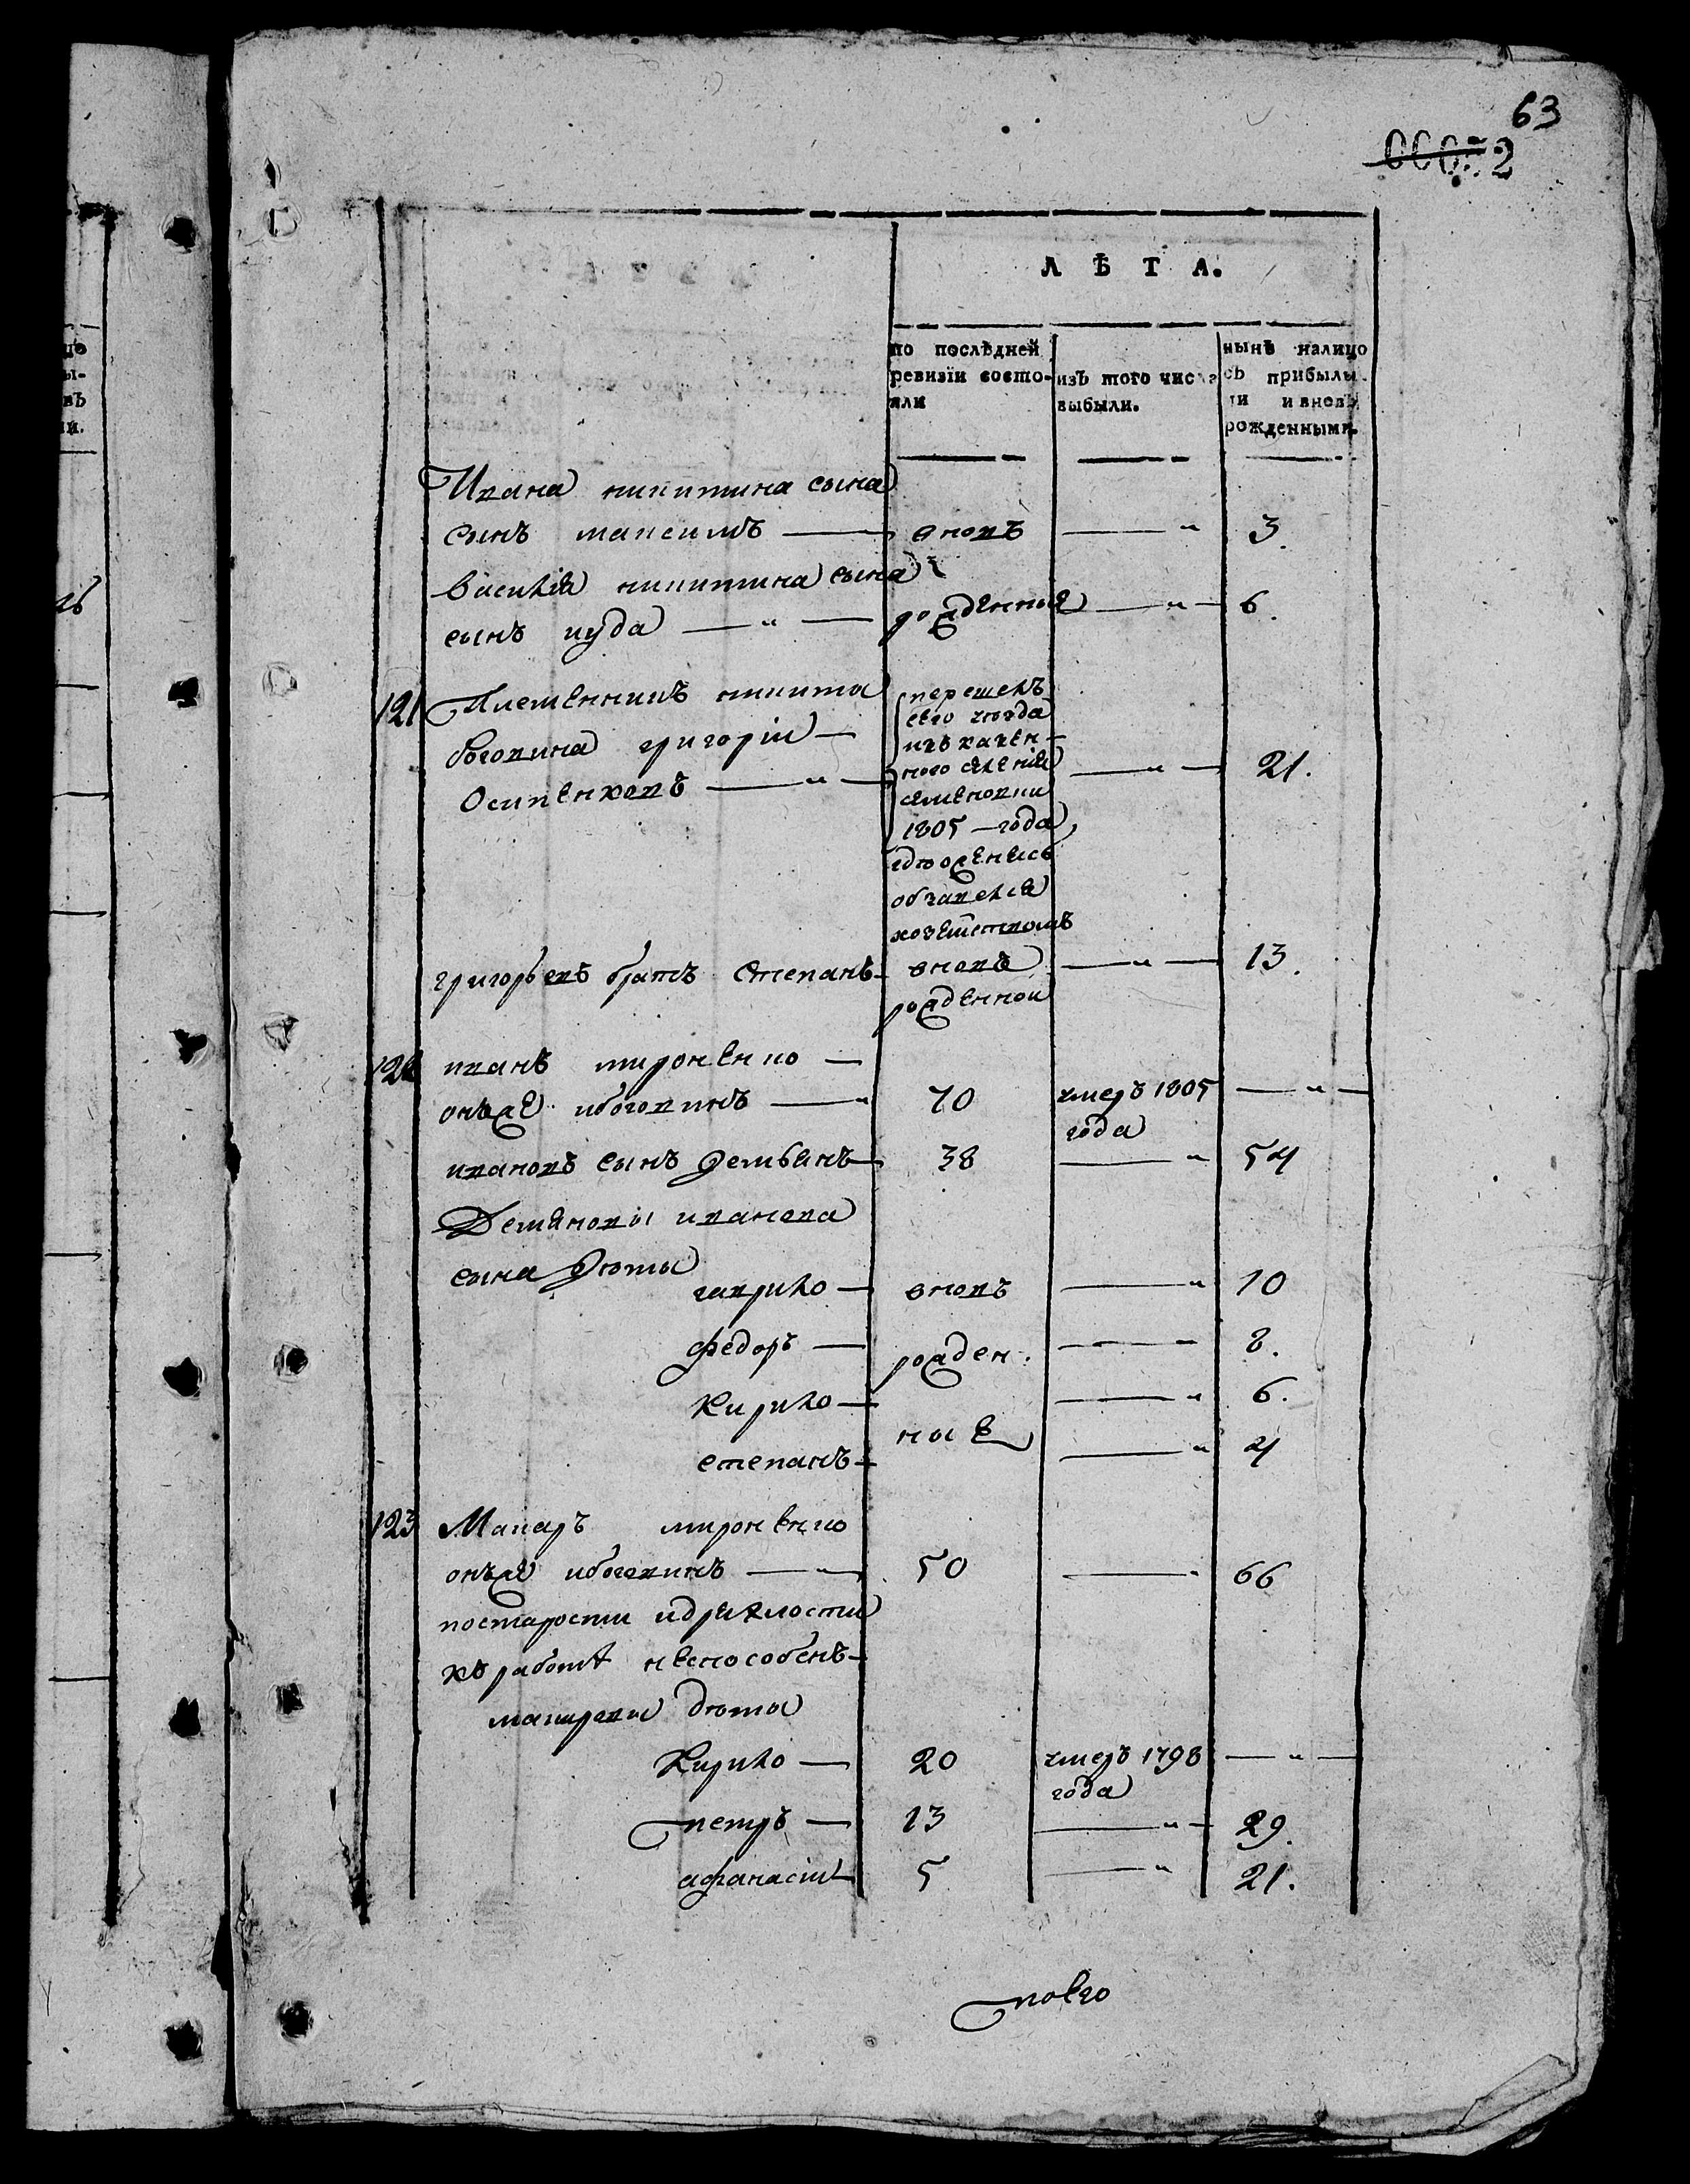 63
00072
ЛѢТА.
по послѣдней ревизіи состояли
изъ того числа выбыли.
нынѣ налицо съ прибылыми и вновь рожденными.
Ивана никитина сына
сынъ максимъ — вновъ — " 3.
василия никитина сына
сынъ иуда — " — рожденные — " — 6.
121 Племенникъ никита
григории — перешелъ
Осипенковъ — " — его
изъ казен-
ного селения — " — 21.
семеновки
1805 — года
обзавелся
григорьевъ братъ степанъ — вновъ — " — 13.
рожденнои
122 иванъ мироненко —
онже ибоговинъ — " 70 умеръ 1805 — " —
года
ивановъ сынъ демьянъ — 38 — " 54
Демяновы иванова
сына дѣти
гаврило — вновъ — " 10
федоръ — рожден. — " 8.
Кирило — — " 6.
степанъ — ные — " 4
123 Макаръ мироненко
онже ибоговинъ — " 50 — " 66
постарости идряхлости
къ работѣ неспособенъ —
макаровы дѣти
Кирило — 20 умеръ 1798 — " —
года
петръ — 13 — " — 29.
афанасии 5 — " 21.
поего